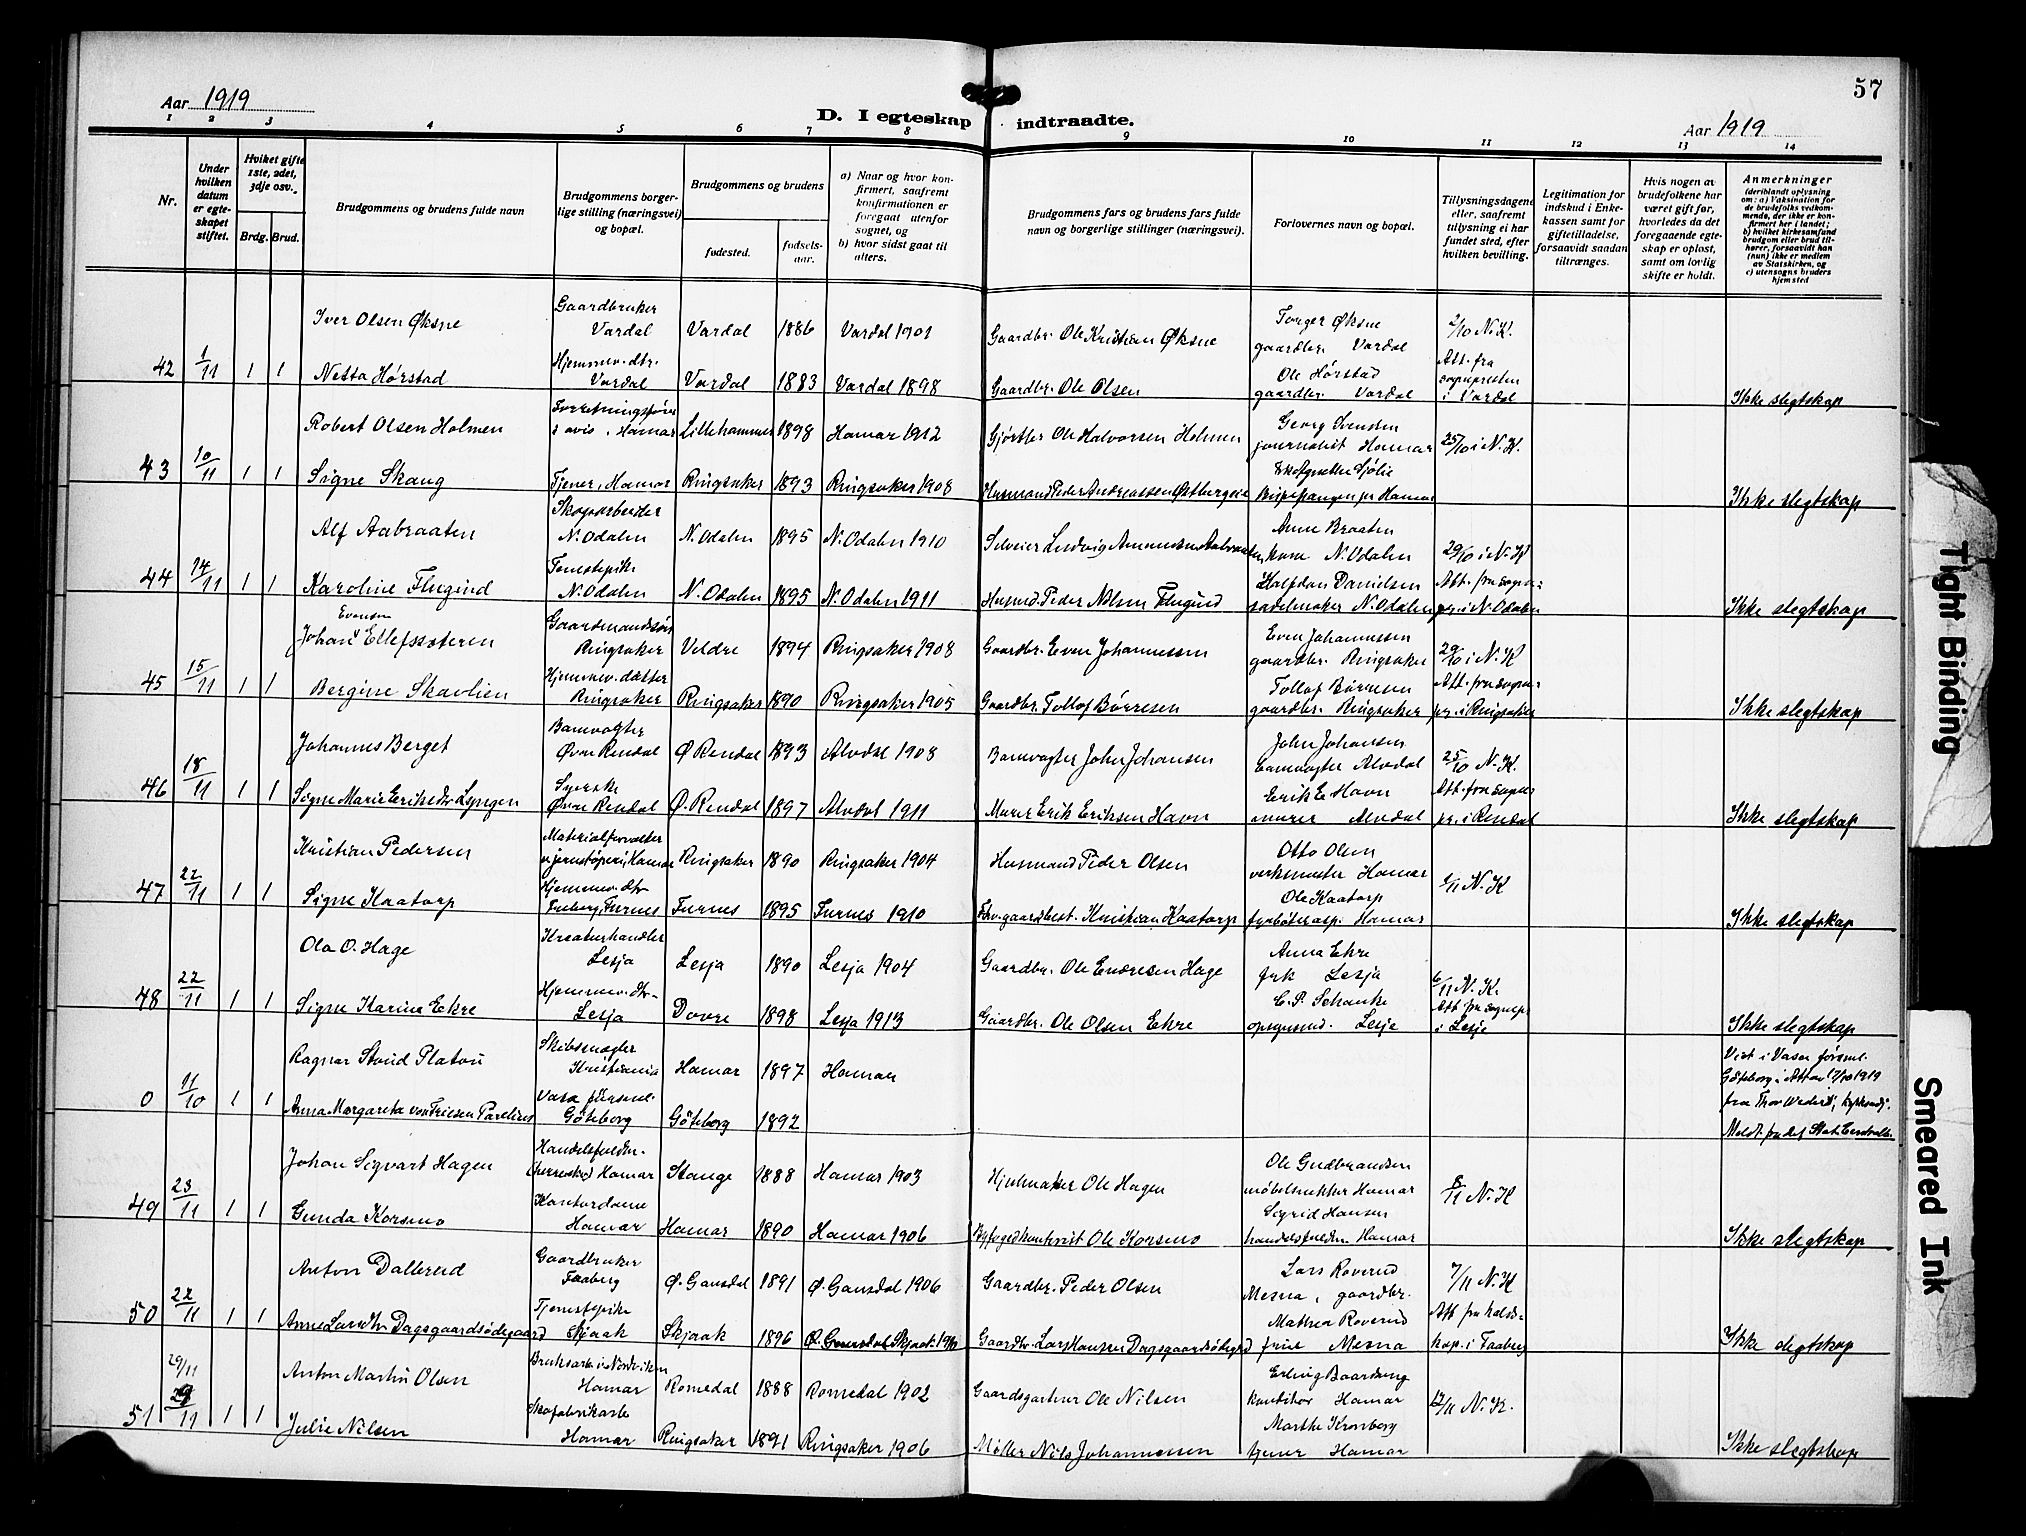 57
Aar 1919
D. I egteskap indtraadte.
Aar 1919
1 2 3 4 5 6 7 8 9 10 11 12 13 14
Nr.
Under hvilken datum er egte-skapet stiftet.
Hvilket gifte 1ste, 2det, 3dje osv.
Brdg. Brud.
Brudgommens og brudens fulde navn
Brudgommens borger-lige stilling (næringsvei) og bopæl.
Brudgommens og brudens
fødested.
fødsels-aar.
a) Naar og hvor kon-firmert, saafremt konfirmationen er foregaat utenfor sognet, og
b) hvor sidst gaat til alters.
Brudgommens fars og brudens fars fulde navn og borgerlige stillinger (næringsvei).
Forlovernes navn og bopæl.
Tillysningsdagene eller, saafremt tillysning ei har fundet sted, efter hvilken bevilling.
Legitimation for indskud i Enke-kassen samt for giftetilladelse, forsaavidt saadan tiltrænges.
Hvis nogen av brudefolkene har været gift før, hvorledes da det foregaaende egte-skap er opløst, samt om lovlig skifte er holdt.
Anmerkninger
(deriblandt oplysning om: a) Vaksination for de brudefolks vedkom-mende, der ikke er kon-firmert her i landet; b) hvilket kirkesamfund brudgom eller brud til-hører, forsaavidt han (hun) ikke er medlem av Statskirken, og c) utensogns bruders hjemsted
Iver Olsen Øksne Gaardbruker Vardal Vardal 1886 Vardal 1901 Gaardbr. Ole Kristian Øksne Torger Øksne gaardbr. Vardal 2/10 N.K.
42 1/11 1 1 Netta Hørstad Hjemmev. dtr. Vardal Vardal 1883 Vardal 1898 Gaardbr. Ole Olsen Ole Hørstad gaardbr. Vardal Att. fra sognepresten i Vardal Ikke slegtskap
Robert Olsen Holmen Forretningsfører i avis, Hamar Lillehammer 1898 Hamar 1912 Gjørtler Ole Halvorsen Holmen Georg Svensten journalist Hamar 25/10 i N.K.
43 10/11 1 1 Signe Skaug Tjener, Hamar Ringsaker 1893 Ringsaker 1908 Husmand Peder Andreassen Østbergeie Sjølie Hamar Ikke slegtskap
Alf Aabraaten Skogsarbeider N. Odalen N. Odalen 1895 N. Odalen 1910 Selveier Ludvig Amundsen Aabraaten Anne Braaten kone N. Odalen 29/10 i N.K
44 14/11 1 1 Karoline Flugind Tjenestepike N. Odalen N. Odalen 1895 N. Odalen 1911 Husmd. Peder Nilsen Flugind Halfdan Danielsen sadelmaker N. Odalen Att. fra sogne-pr. i N. Odalen Ikke slegtskap
Evensen
Johan Ellefssæteren Gaardmandssøn Ringsaker Veldre 1894 Ringsaker 1908 Gaardbr. Even Johannessen Even Johannessen gaardbr. Ringsaker 29/10 i N.K
45 15/11 1 1 Bergine Skavlien Hjemmev. datter Ringsaker Ringsaker 1890 Ringsaker 1905 Gaardbr. Tollof Børresen Tollof Børresen gaardbr. Ringsaker Att. fra sogne-pr. i Ringsaker Ikke slegtskap
Johannes Berget Banevogter Øvre Rendal Ø Rendal 1893 Alvdal 1908 Banevogter John Johansen John Johansen banevogter Alvdal 25/10 N.K.
46 18/11 1 1 Signe Marie Eriksdtr Lyngen Syerske Øvre Rendal Ø. Rendal 1897 Alvdal 1911 Murer Erik Eriksen Havn Erik E Havn murer Alvdal Att. fra sogne-pr. i Rendal Ikke slegtskap
Kristian Pedersen Materialforvalter v. jernstøperi, Hamar Ringsaker 1890 Ringsaker 1904 Husmand Peder Olsen Otto Olsen verksmester Hamar 1/11 N.K
47 22/11 1 1 Signe Kaatorp Hjemmev. dtr Furnes Furnes 1895 Furnes 1910 Kristian Kaatorp Ole Kaatorp fyrbøterasp. Hamar Ikke slegtskap
Ola O. Hage Kreaturhandler Lesja Lesja 1890 Lesja 1904 Gaardbr. Ole Endresen Hage Anna Ekre frk Lesja 6/11 N.K.
48 22/11 1 1 Signe Karine Ekre Hjemmev. dtr- Lesja Dovre 1898 Lesja 1913 Gaardbr. Ole Olsen Ekre C.P. Schanke Lesje Att. fra sognepr i Lesje Ikke slegtskap
Ragnar Stoud Platou Skibsmægler Kristiania Hamar 1897 Hamar Viet i Vasa førsml. Göteborg i Att av 17/10 1919
0 11/10 1 1 Anna Margareta von Friesen Parelius Vasa församl. Göteborg Göteborg 1892 fra Thor
Johan Sigvart Hagen Hamar Stange 1888 Hamar 1903 Hjulmaker Ole Hagen Ole Gudbrandsen møbelsnekker Hamar 8/11 N.K
49 23/11 1 1 Gunda Korsmo Kontordame Hamar Hamar 1890 Hamar 1906 Byfogedkontorist Ole Korsmo Sigrid Hansen Hamar Ikke slegtskap
Anton Dallerud Gaardbruker Faaberg Ø. Gausdal 1891 Ø. Gausdal 1906 Gaardbr. Peder Olsen Lars Roverud Mesna, gaardbr. 7/11 N.K
50 22/11 1 1 Anne Larsdtr. Dagsgaardsødegaard Tjenestepike Skjaak Skjaak 1896 Gaardbr. Lars Hansen Dagsgaardsødegrd Mathea Roverud frue Mesna Att fra kalds-kap. i Faaberg Ikke slegtskap
29/11 Anton Martin Olsen Hamar Romedal 1888 Romedal 1902 Gaardsgartner Ole Nilsen Erling Baardseng konditor Hamar 12/11 N.K.
51 29/11 1 1 Julie Nilsen Skofabrikarb. Hamar Ringsaker 1891 Ringsaker 1906 Møller Nils Johannessen Marthe Kronborg tjener Hamar Ikke slegtskap
Tight Binding
Smeared Ink